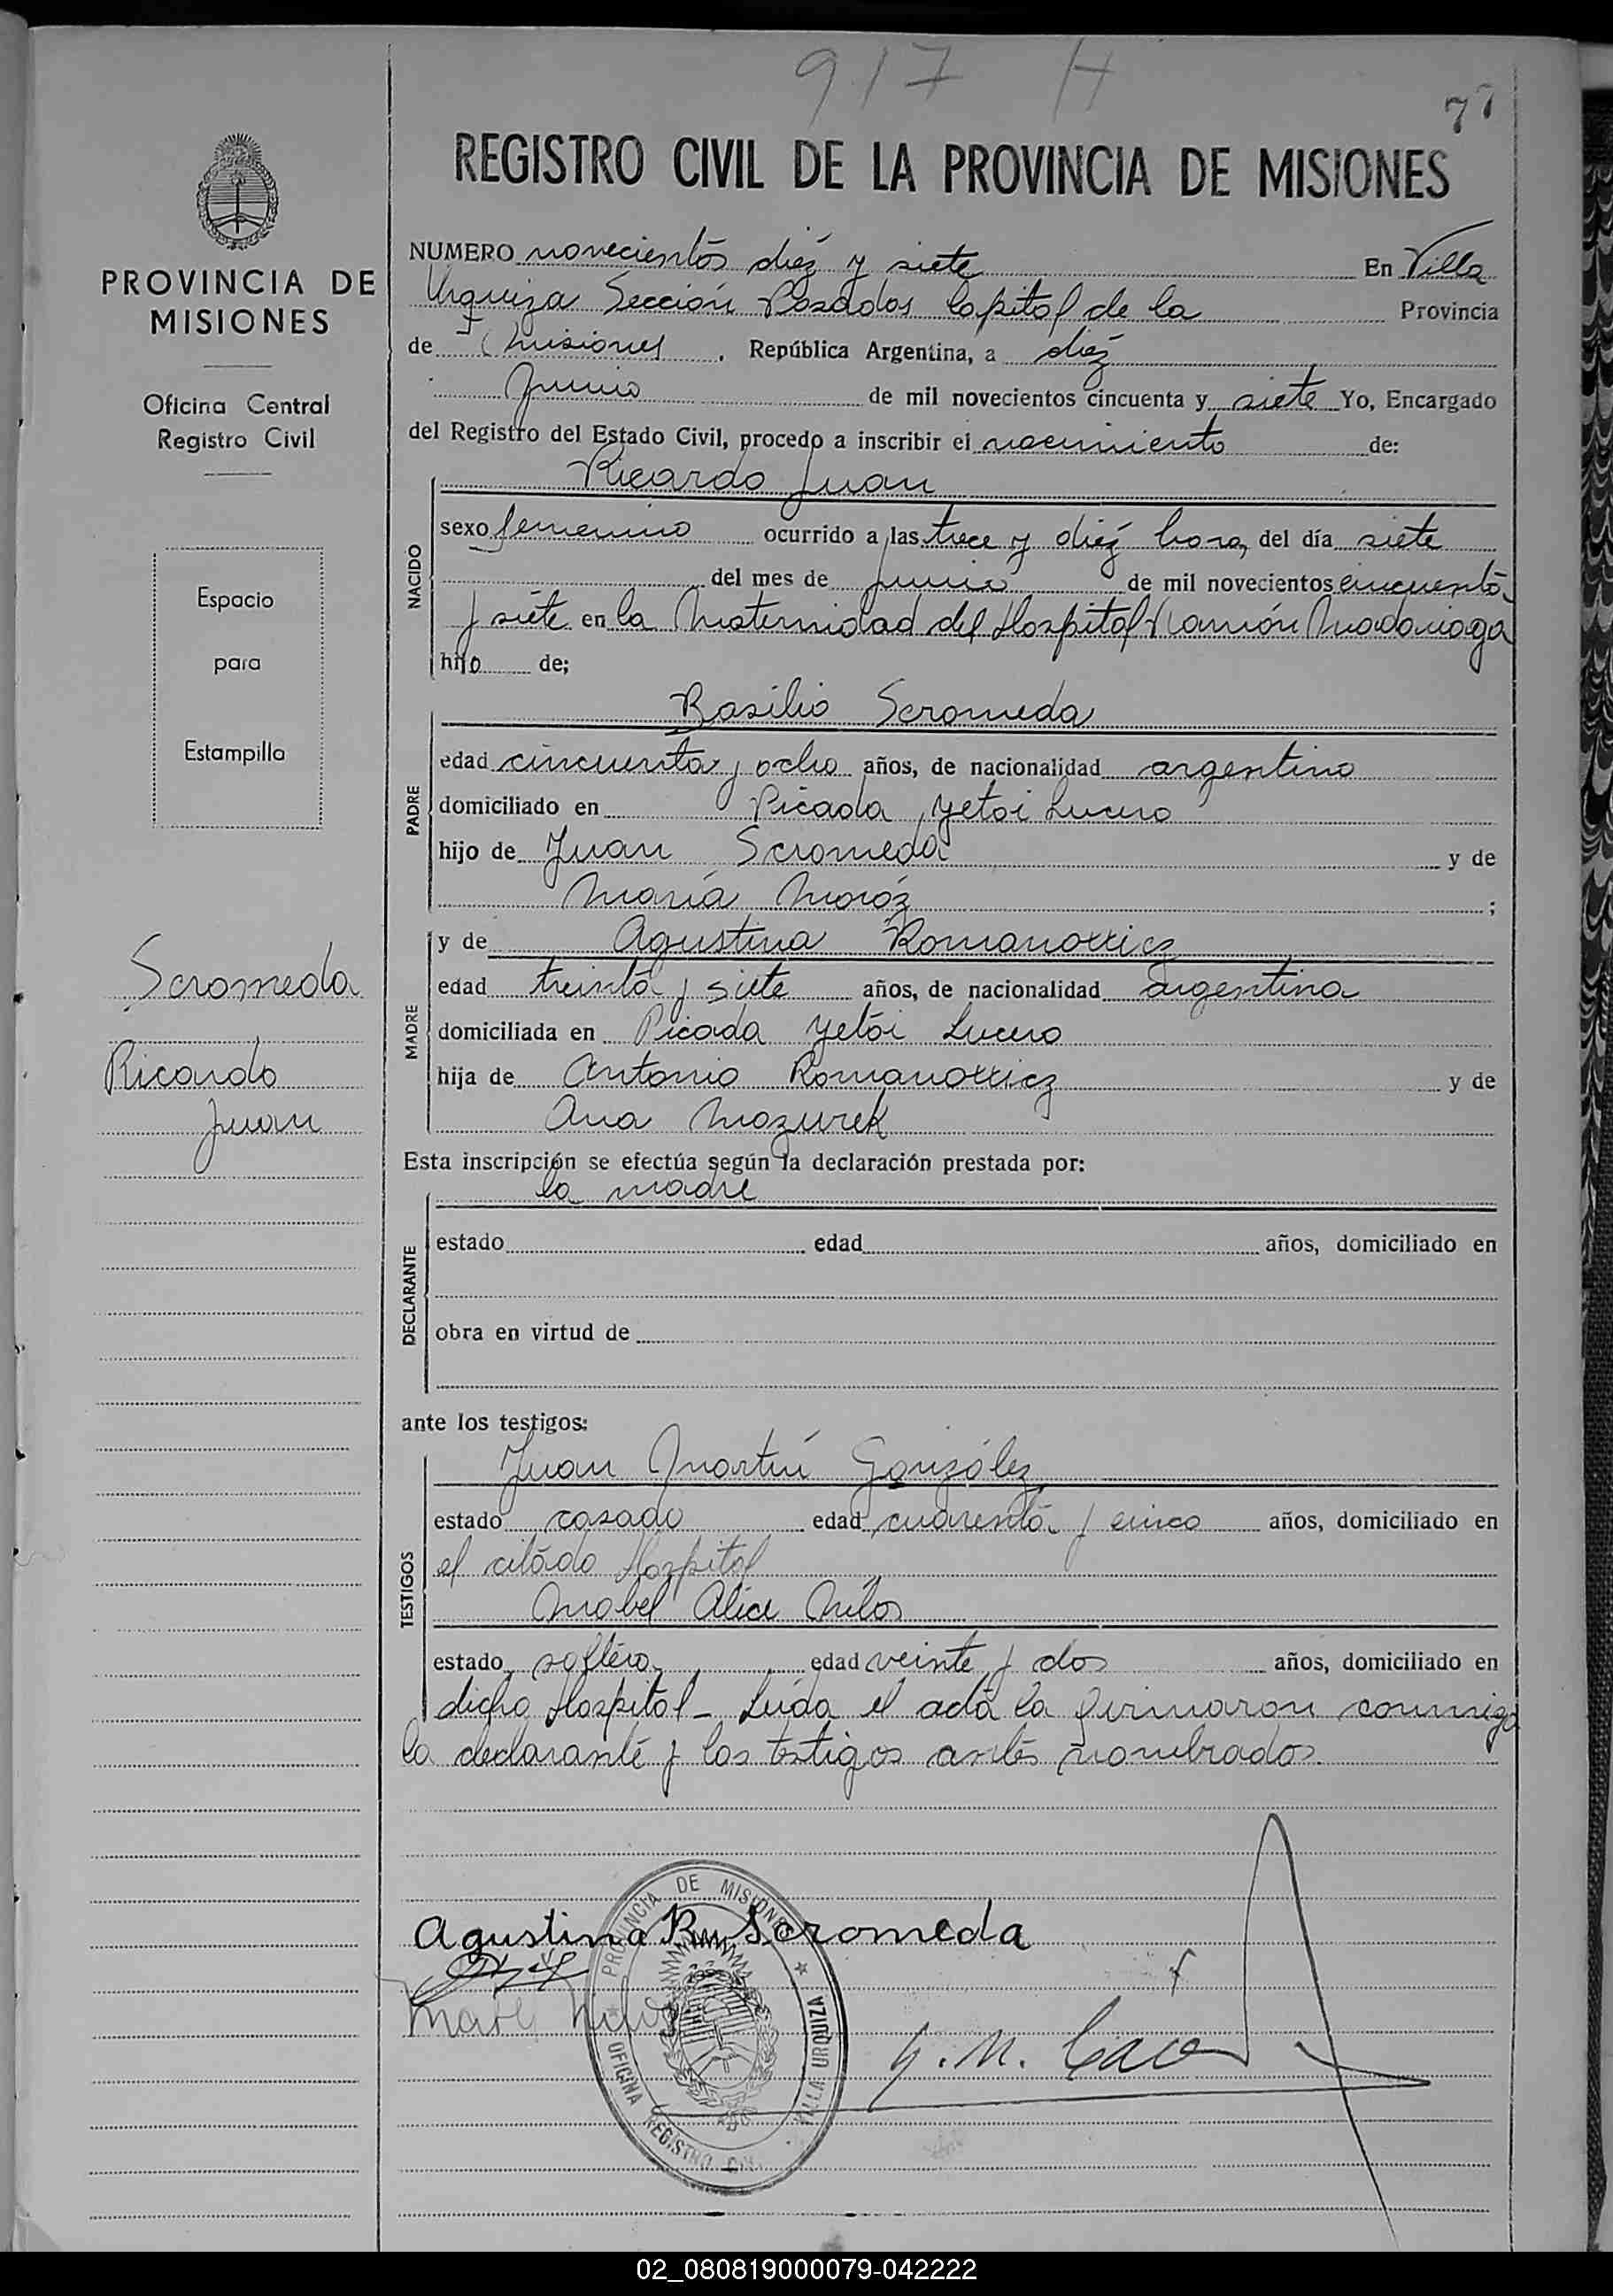 917 H
77
REGISTRO CIVIL DE LA PROVINCIA DE MISIONES
PROVINCIA DE
MISIONES
Oficina Central
Registro Civil
Espacio
para
Estampilla
Scromeda
Ricardo
Juan
NUMERO novecientos diéz y siete En Villa
Urquiza Sección Posadas Capital de la Provincia
de Misiones . República Argentina, a diéz
Junio de mil novecientos cincuenta y siete Yo, Encargado
del Registro del Estado Civil, procedo a inscribir el nacimiento de:
NACIDO
Ricardo Juan
sexo femenino ocurrido a las trece y diéz hora, del día siete
del mes de junio de mil novecientos cincuenta
y siete en la Maternidad del Hospital Ramón Madariaga
hijo de;
PADRE
Basilio Scromeda
edad cincuenta y ocho años, de nacionalidad argentino
domiciliado en Picada Yetai Lucero
hijo de Juan Scromeda y de
María Moróz ;
MADRE
y de Agustina Romanowicz
edad treinta y siete años, de nacionalidad argentina
domiciliada en Picada Yetái Lucero
hija de Antonio Romanowicz y de
Ana Mazurek
Esta inscripción se efectúa según la declaración prestada por:
DECLARANTE
la madre
estado edad años, domiciliado en
obra en virtud de
ante los testigos:
TESTIGOS
Juan Martín González
estado casado edad cuarenta y cinco años, domiciliado en
el citado Hospital
Mabel Alice
estado soltera edad veinte y dos años, domiciliado en
dicho Hospital - Leída el acta la firmaron conmigo
la declarante y los testigos antes nombrados.
Agustina R. Scromeda
PROVINCIA DE MISIONES
OFICINA REGISTRO VILLA URQUIZA
02_080819000079-042222